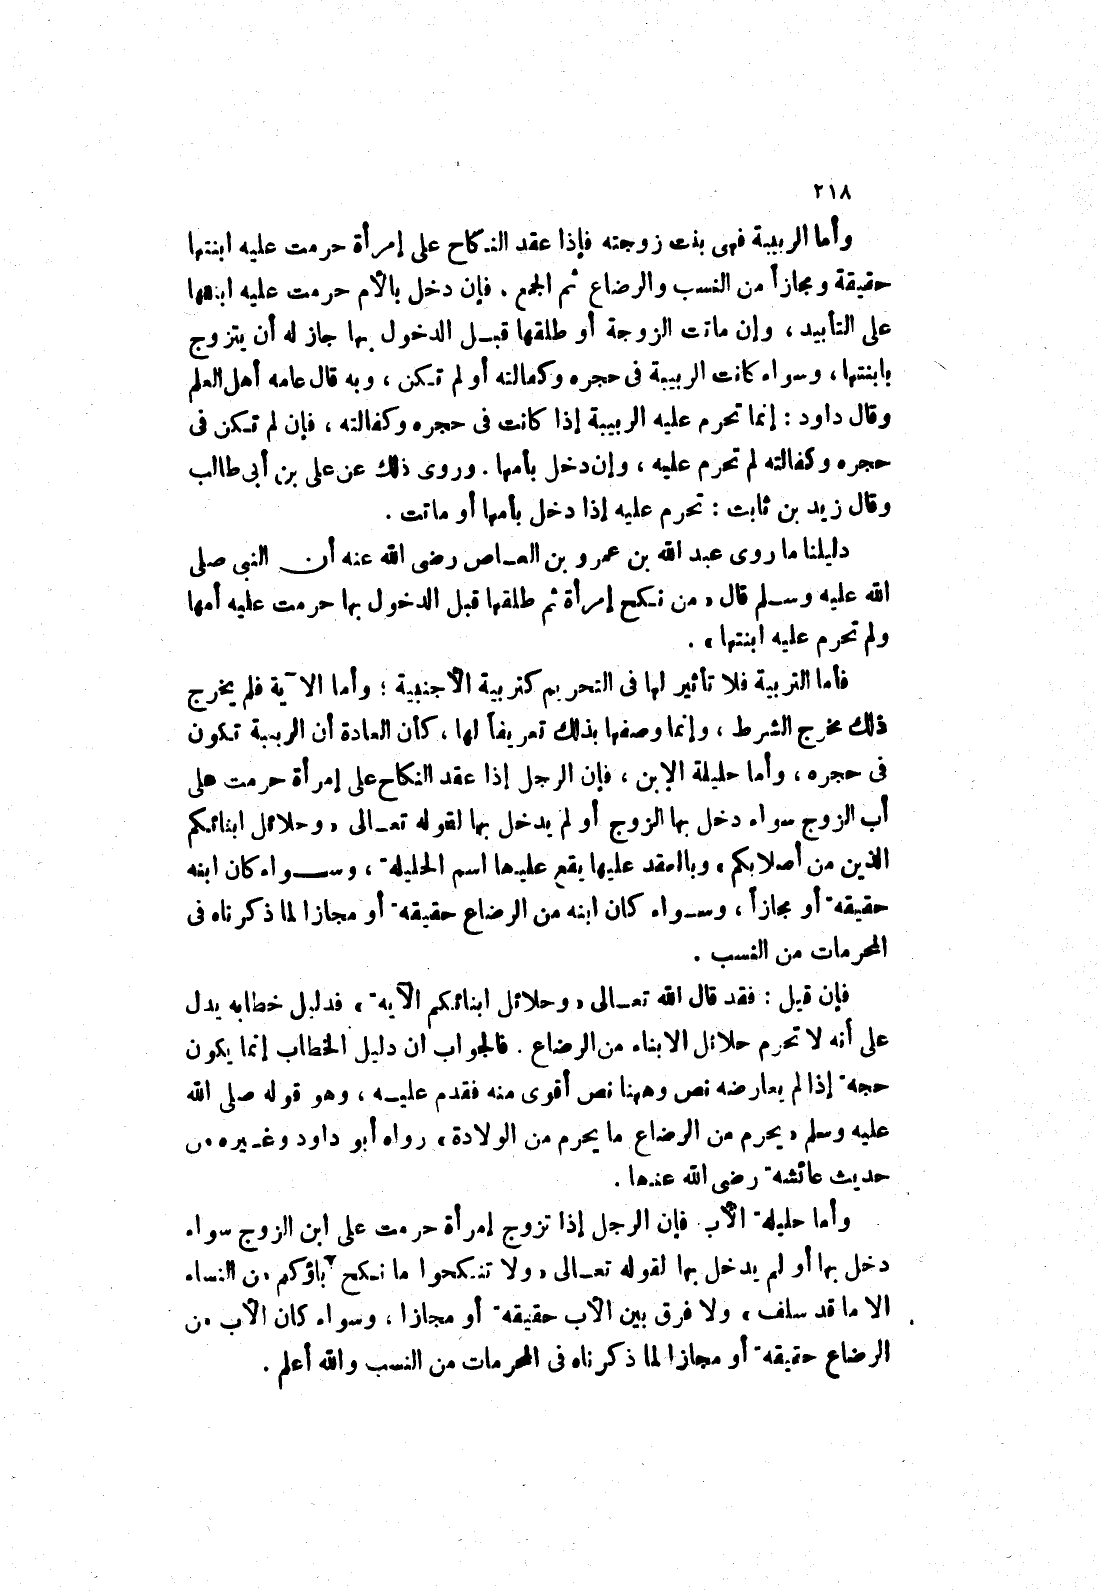 ٢١٨
وأما الربيبة فهى بنت زوجته فإذا عقد النكاح على إمرأة حرمت عليه ابنتها
حقيقة ومجازاً من النسب والرضاع ثم الجمع . فإن دخل بالأم حرمت عليه ابنتها
على التأبيد ، وإن ماتت الزوجة أو طلقها قبل الدخول بها جاز له أن يتزوج
بابنتها ، وسواء كانت الربيبة فى حجره وكفالته أو لم تكن ، وبه قال عامه أهل العلم
وقال داود : إنما تحرم عليه الربيبة إذا كانت فى حجره وكفالته ، فإن لم تكن فى
حجره وكفالته لم تحرم عليه ، وإن دخل بأمها . وروى ذلك عن على بن أبى طالب
وقال زيد بن ثابت : تحرم عليه إذا دخل بأمها أو ماتت .
دليلنا ما روى عبد الله بن عمرو بن العاص رضى الله عنه أن النبى صلى
الله عليه وسلم قال « من نكح إمرأة ثم طلقها قبل الدخول بها حرمت عليه أمها
ولم تحرم عليه ابنتها » .
فأما التربية فلا تأثير لها فى التحريم كتربية الأجنبية ؛ وأما الآية فلم يخرج
ذلك مخرج الشرط ، وإنما وصفها بذلك تعريفاً لها ، كأن العادة أن الربيبة تكون
فى حجره ، وأما حليلة الإبن ، فإن الرجل إذا عقد النكاح على إمرأة حرمت على
أب الزوج سواء دخل بها الزوج أو لم يدخل بها لقوله تعالى « وحلائل ابنائكم
الذين من أصلابكم » وبالعقد عليها يقع عليها اسم الحليلة ، وسواء كان ابنه
حقيقة أو مجازاً ، وسواء كان ابنه من الرضاع حقيقة أو مجازا لما ذكرناه فى
المحرمات من النسب .
فإن قيل : فقد قال الله تعالى « وحلائل ابنائكم الآية » فدليل خطابه يدل
على أنه لا تحرم حلائل الابناء من الرضاع . فالجواب ان دليل الخطاب إنما يكون
حجة إذا لم يعارضه نص وههنا نص أقوى منه فقدم عليه ، وهو قوله صلى الله
عليه وسلم « يحرم من الرضاع ما يحرم من الولادة » رواه أبو داود وغيره من
حديث عائشة رضى الله عنها .
وأما حليلة الأب فإن الرجل إذا تزوج إمرأة حرمت على ابن الزوج سواء
دخل بها أو لم يدخل بها لقوله تعالى « ولا تنكحوا ما نكح آباؤكم من النساء
الا ما قد سلف » ولا فرق بين الأب حقيقة أو مجازا ، وسواء كان الأب من
الرضاع حقيقة أو مجازا لما ذكرناه فى المحرمات من النسب والله أعلم .